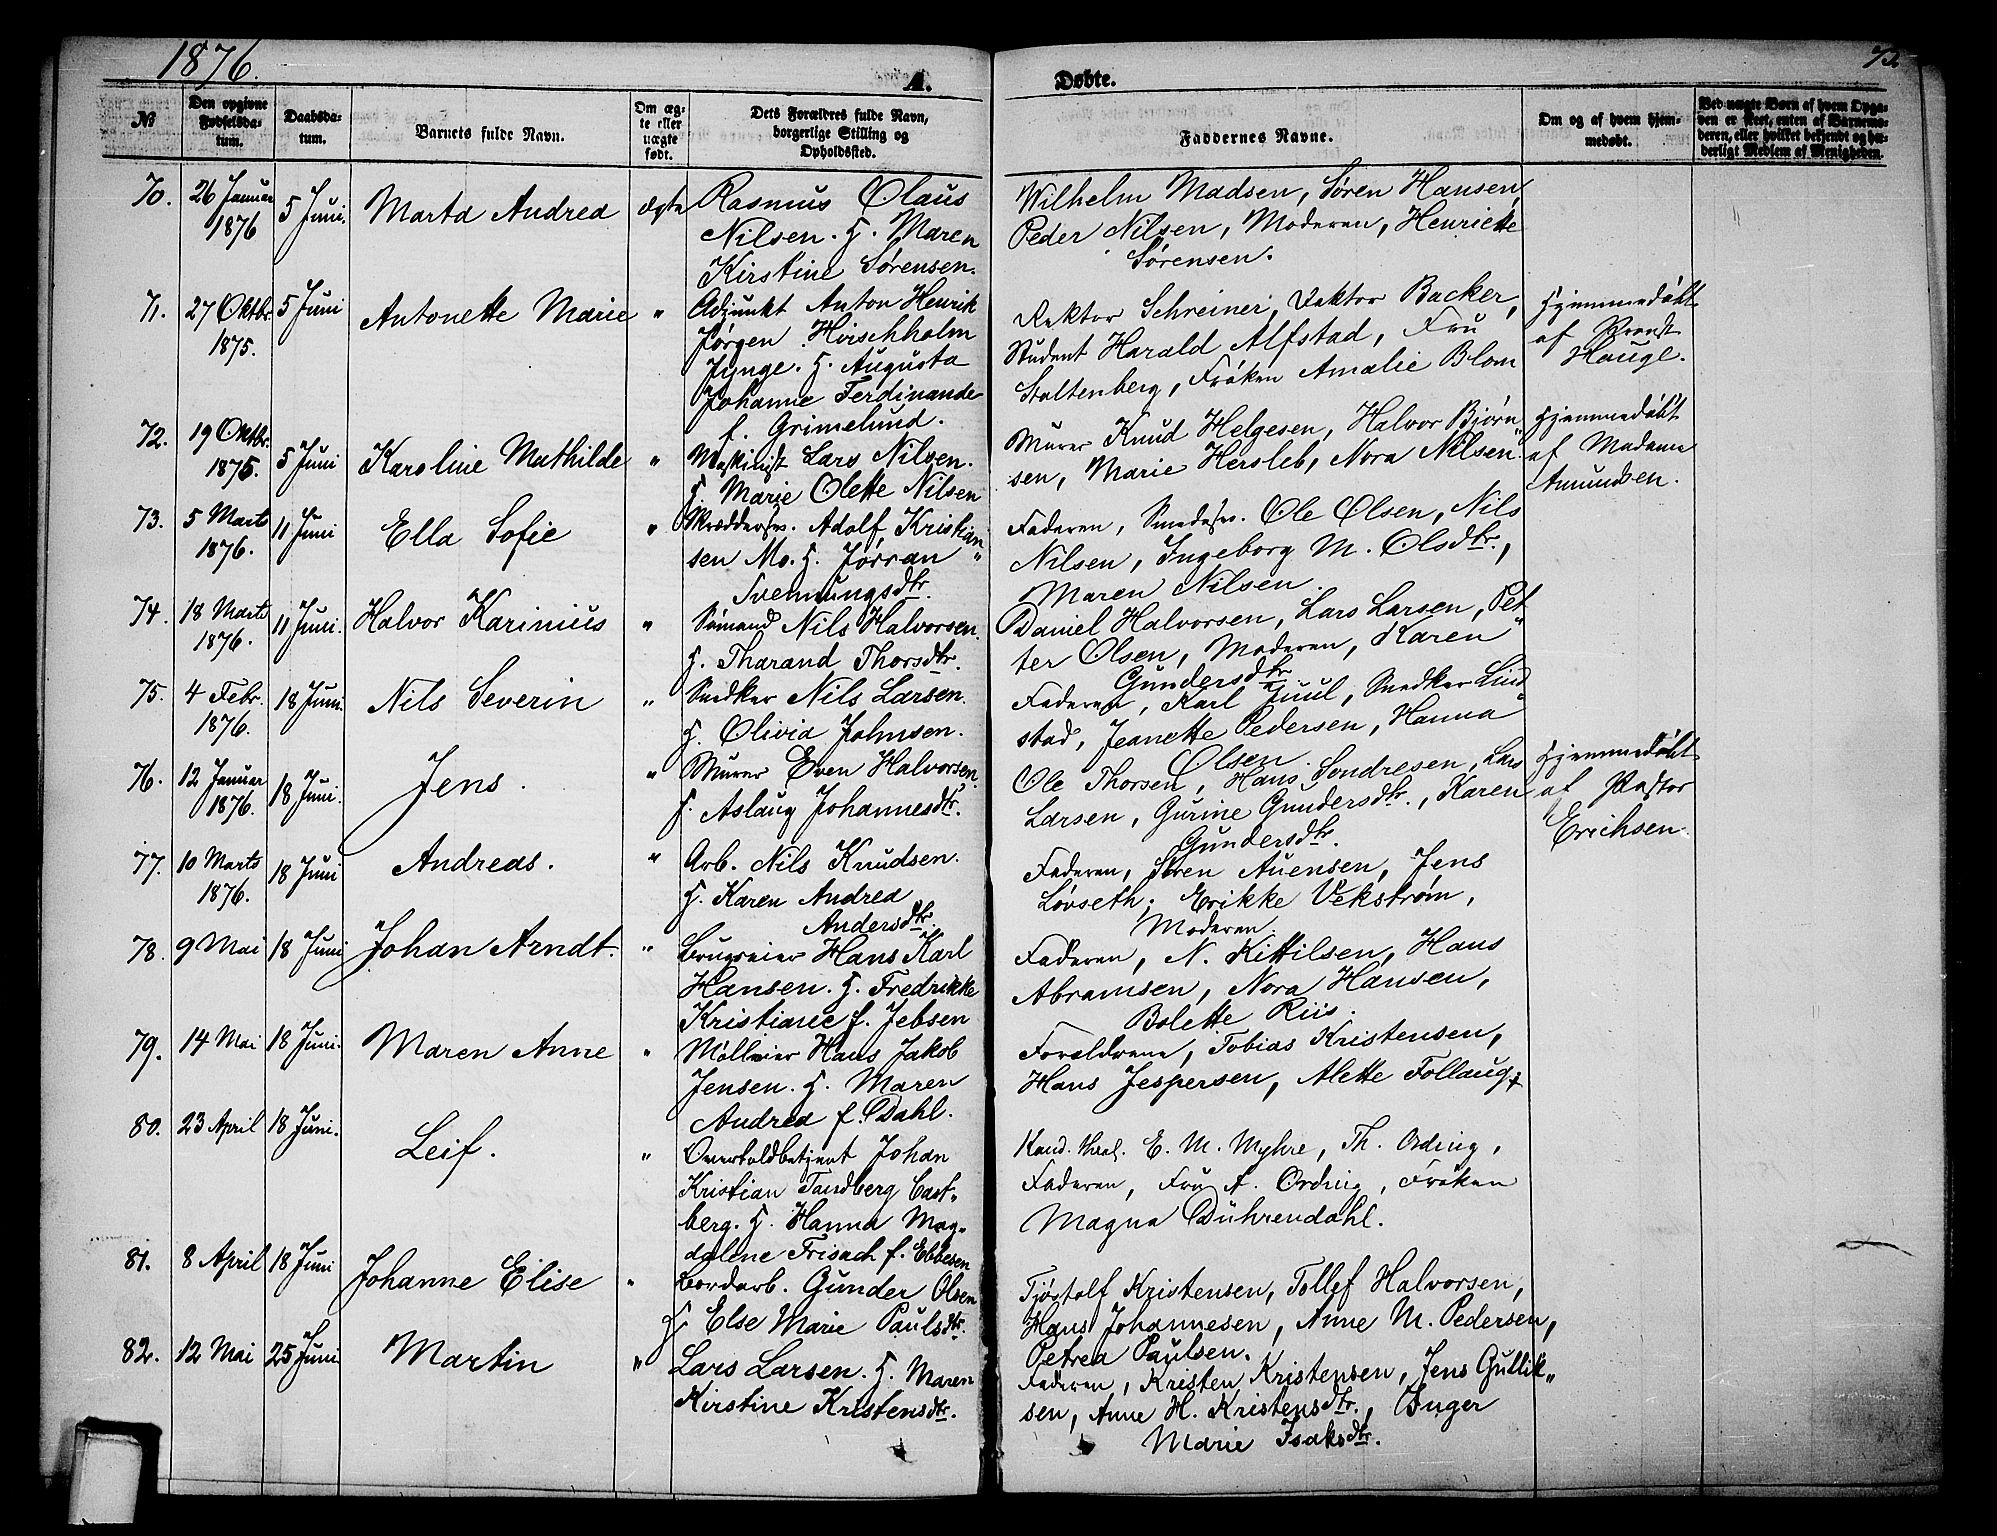 1876.
A.
Døbte.
72
№
Den opgivne Fødselsda-tum.
Daabsda-tum.
Barnets fulde Navn.
Om æg-te eller uægte født.
Dets Forældres fulde Navn, borgerlige Stilling og Opholdssted.
Faddernes Navne.
Om og af hvem hjem-medøbt.
Ved uægte Børn af hvem Opga-ven er skeet, enten af Barnemo-deren, eller hvilket bekjendt og hæ-derligt Medlem af Menigheden.
70. 26 Januar 1876 5 Juni. Marta Andrea ægte
Rasmus Olaus
Nilsen. H. Maren
Kirstine Sørensen.
Wilhelm Madsen, Søren Hansen,
Peder Nilsen, Moderen, Henriette
Sørensen.
71. 27 Oktbr. 1875. 5 Juni Antonette Marie "
Adjunkt Anton Henrik
Jørgen Hirschholm
Jynge. H. Augusta
Johanne Ferdinande
f. Grimelund.
Rektor Schreiner, Rektor Backer,
Student Harald Alfstad, Fru
Stoltenberg, Frøken Amalie Blom
Hjemmedøbt
af Provst
Hauge.
72. 19 Oktbr. 1875. 5 Juni Karoline Mathilde "
Maskinist Lars Nilsen.
H. Marie Olette Nilsen
Murer Knud Helgesen, Halvor Bjørn"
sen, Marie Hersleb, Nora Nilsen.
Hjemmedøbt
af Madame
Amundsen.
73. 5 Marts 1876. 11 Juni Ella Sofie "
Skræddersv. Adolf Kristian"
sen Mo. H. Jørran
Svennungsdtr.
Faderen, Smedesv. Ole Olsen, Nils
Nilsen, Ingeborg M. Olsdtr.,
Maren Nilsen.
74. 18 Marts 1876. 11 Juni. Halvor Karinius "
Sømand Nils Halvorsen.
H. Tharand Thorsdtr.
Daniel Halvorsen, Lars Larsen, Pet"
ter Olsen, Moderen, Karen
Gundersdtr.
75. 4 Febr. 1876. 18 Juni. Nils Severin "
Snedker Nils Larsen.
H. Olivia Johnsen.
Faderen, Karl Juul, Snedker Lind"
stad, Jeanette Pedersen, Hanna
Olsen.
76. 12 Januar 1876. 18 Juni. Jens. "
Murer Even Halvorsen.
H. Aslaug Johannesdtr.
Ole Thorsen, Hans Sondresen, Lars
Larsen, Gurine Gundersdtr., Karen
Gundersdtr.
Hjemmedøbt
af Pastor
Erichsen.
77. 10 Marts 1876. 18 Juni Andreas. "
Arb. Nils Knudsen.
H. Karen Andrea
Andersdtr.
Faderen, Søren Auensen, Jens
Løvseth, Erikke Vekstrøm,
Moderen.
78. 9 Mai 18 Juni Johan Arndt. "
Brugseier Hans Karl
Hansen. H. Fredrikke
Kristiane f. Jebsen
Faderen, N. Kittilsen, Hans
Abramsen, Nora Hansen,
Bolette Riis.
79. 14 Mai 18 Juni. Maren Anne "
Mølleeier Hans Jakob
Jensen. H. Maren
Andrea f. Dahl.
Forældrene, Tobias Kristensen,
Hans Jespersen, Alette Follaug
80. 23 April 18 Juni. Leif. "
Overtoldbetjent Johan
Kristian Tandberg Cast"
berg. H. Hanna Mag"
dalene Frisach f. Ebbesen
Kand. theol. E. M. Myhre, Th. Ording,
Faderen, Fru A. Ording, Frøken
Magna Dührendahl.
81. 8 April 18 Juni Johanne Elise "
Bordarb. Gunder Olsen
H Else Marie Paulsdtr.
Tjøstolf Kristensen, Tollef Halvorsen,
Hans Johannesen, Anne M. Pedersen,
Petrea Paulsen.
82. 12 Mai 25 Juni Martin "
Lars Larsen. H. Maren
Kirstine Kristensdtr.
Faderen, Kristen Kristensen, Jens Gullik"
sen, Anne H. Kristensdtr., Inger
Marie Isaksdtr.